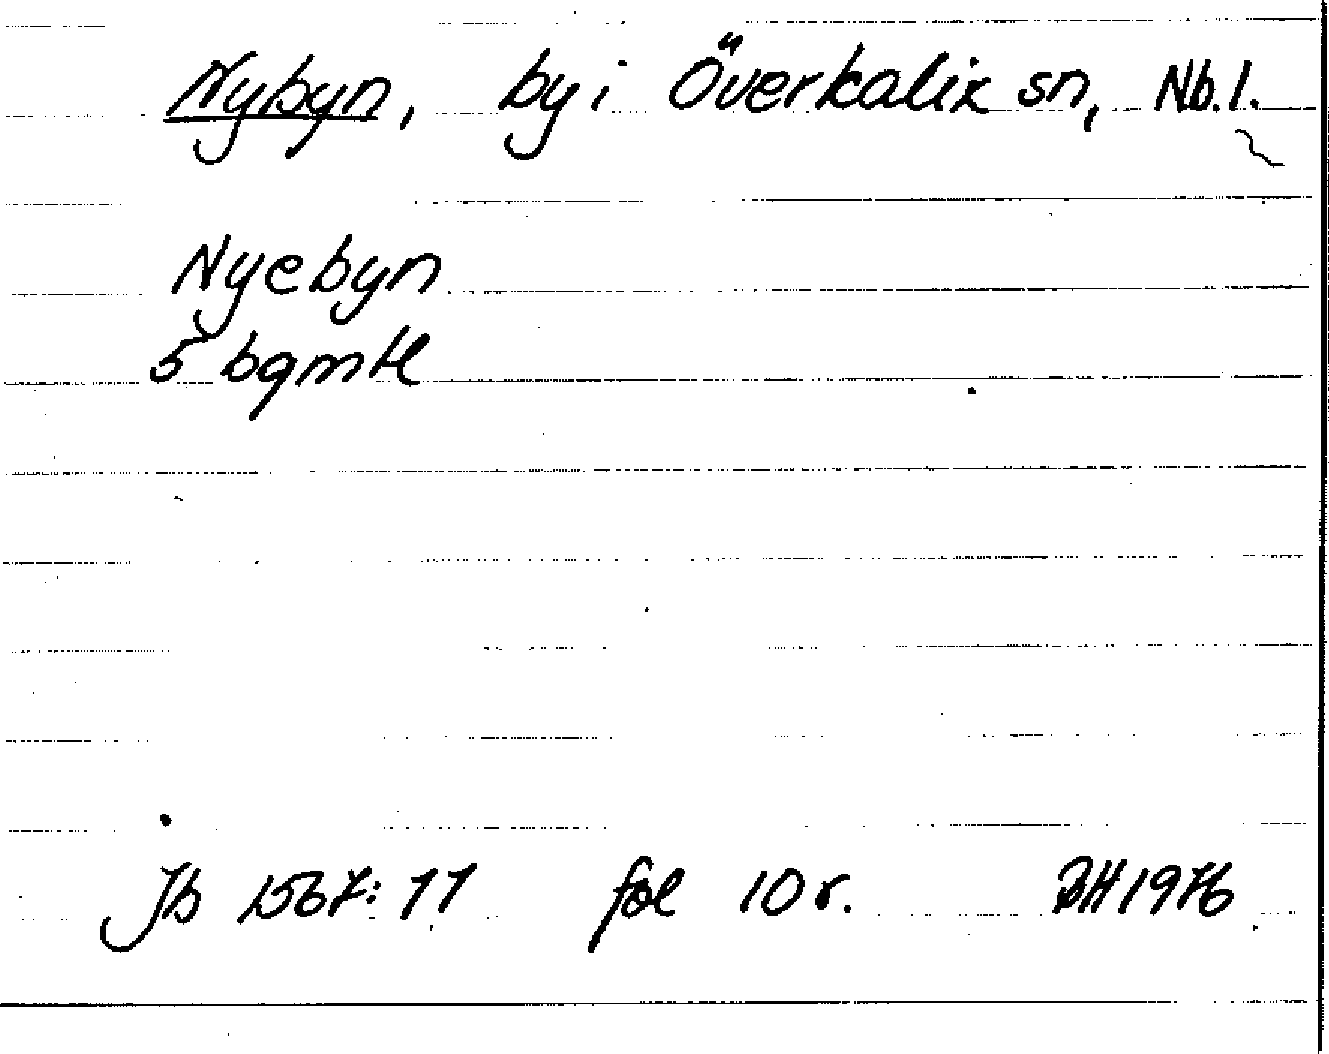 Nybyn, by i Överkalix sn, Nb.l.
Nyebyn
5 bgmtl
Jb 1567:11 fol 10 r. BH 1976